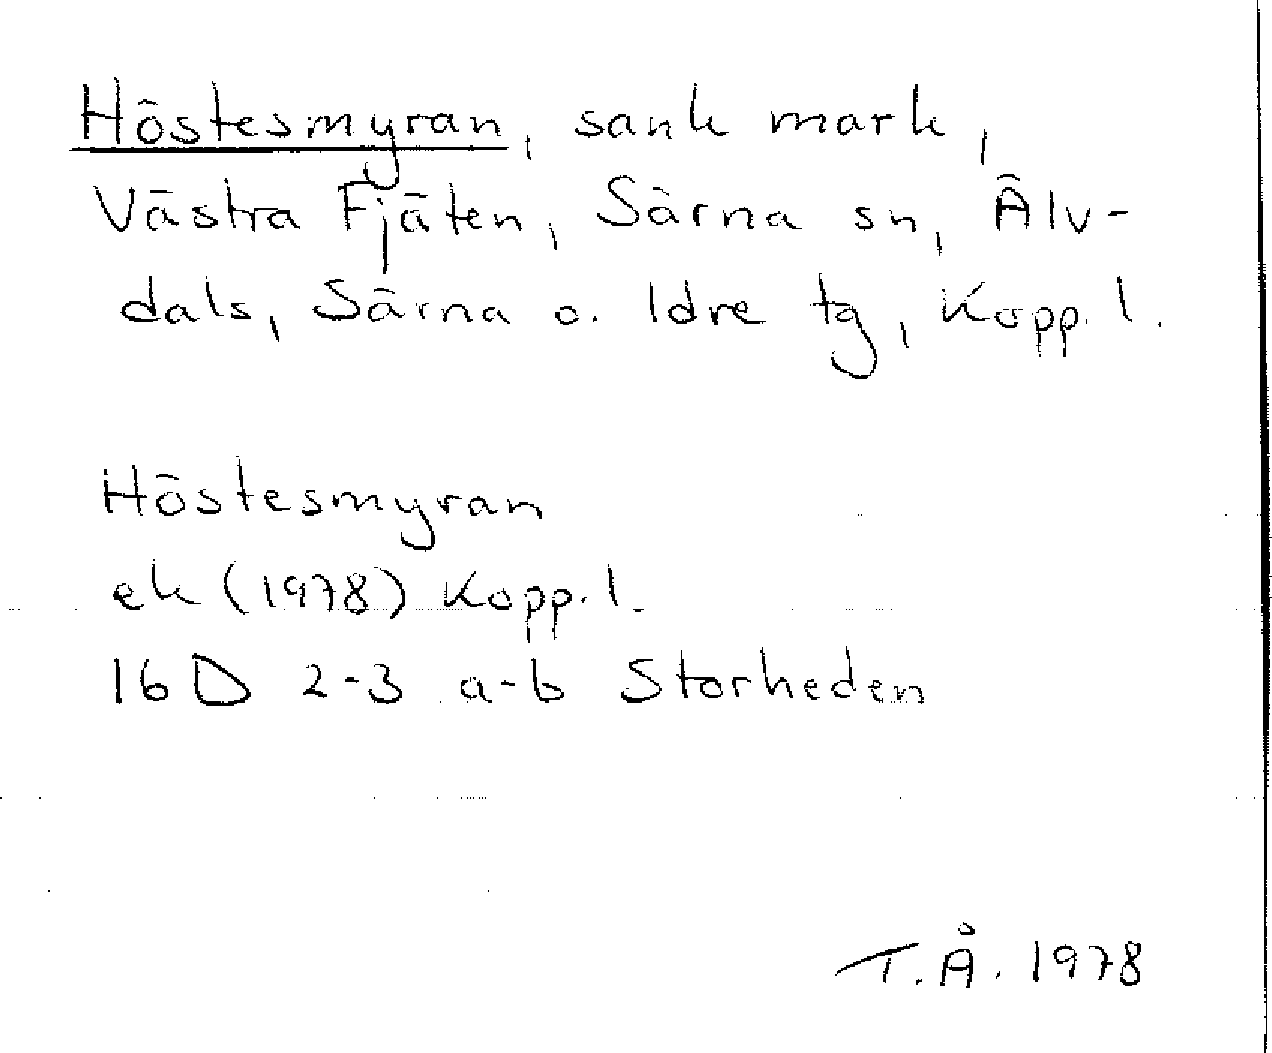 Höstesmyran, sank mark,
Västra Fjäten, Särna sn, Älv-
dals, Särna o. Idre tg, Kopp. l.
Höstesmyran
ek (1978) Kopp. l.
16 D 2-3 a-b Storheden
T.Å. 1978